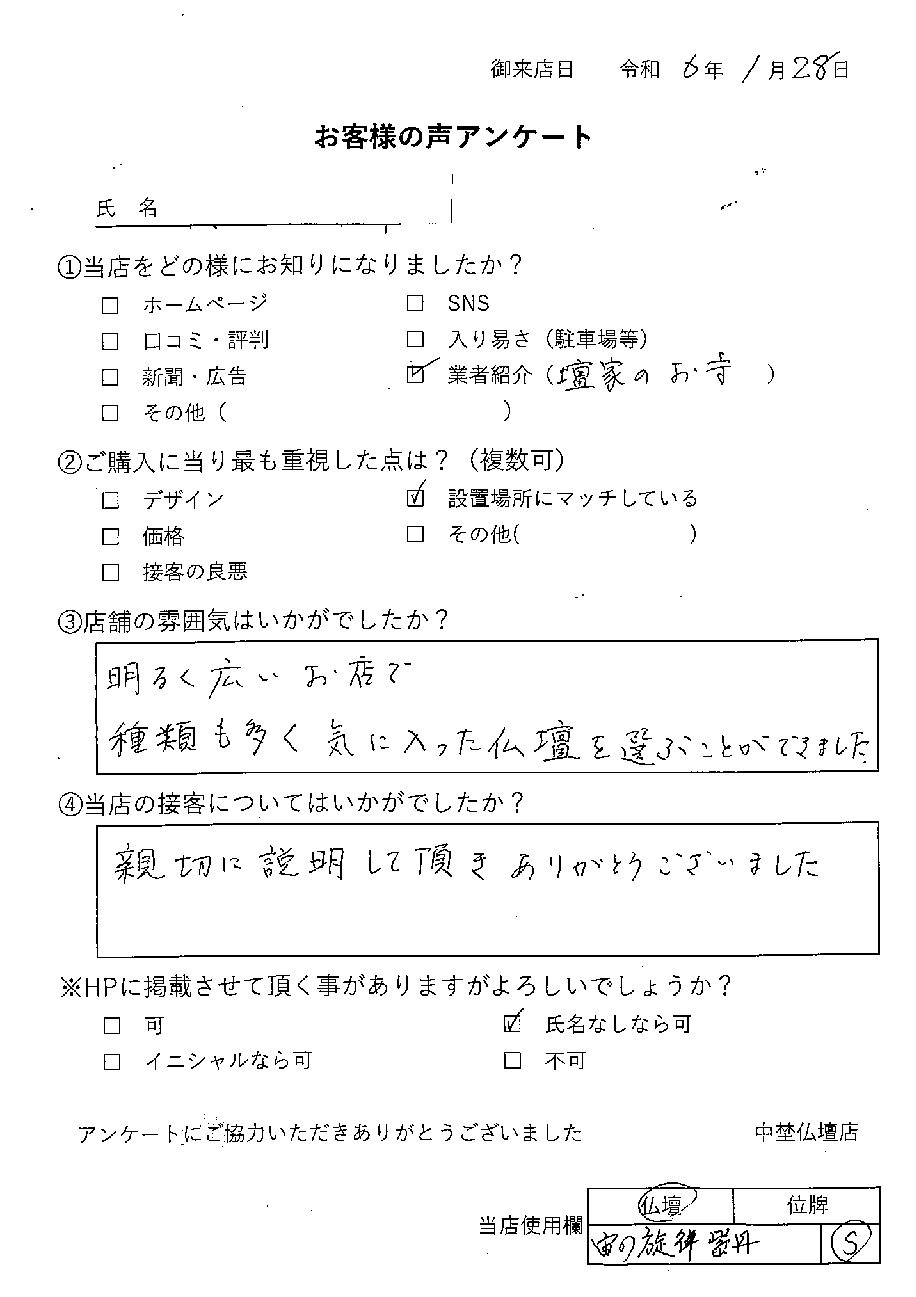 御来店日 令和 6年 1月28日
お客様の声アンケート
氏 名
①当店をどの様にお知りになりましたか？
□ ホームページ □ SNS
□ 口コミ・評判 □ 入り易さ（駐車場等）
□ 新聞・広告 ☑ 業者紹介（壇家のお寺 ）
□ その他（ ）
②ご購入に当り最も重視した点は？（複数可）
□ デザイン ☑ 設置場所にマッチしている
□ 価格 □ その他( )
□ 接客の良悪
③店舗の雰囲気はいかがでしたか？
明るく広いお店で
種類も多く気に入った仏壇を選ぶことができました
④当店の接客についてはいかがでしたか？
親切に説明して頂きありがとうございました
※HPに掲載させて頂く事がありますがよろしいでしょうか？
□ 可 ☑ 氏名なしなら可
□ イニシャルなら可 □ 不可
アンケートにご協力いただきありがとうございました 中埜仏壇店
仏壇 位牌
当店使用欄
宙の旋律 S